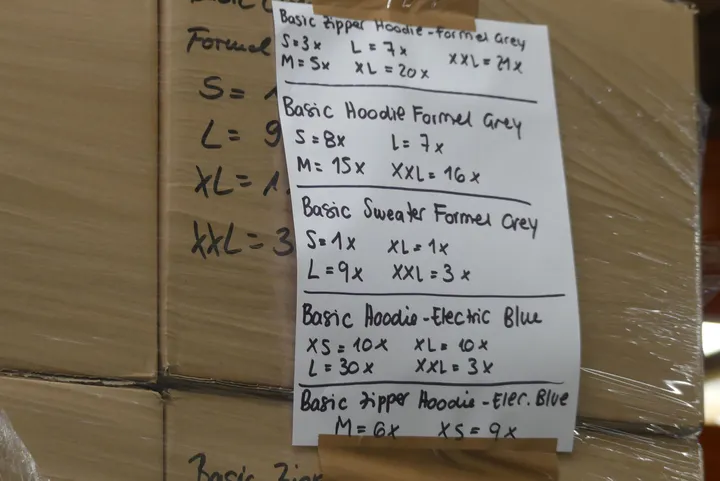 Basic Zipper Hoodie - Formel Grey
S=3x L=7x XXL=21x
M=5x XL=20x
Basic Hoodie Formel Grey
S=8x L=7x
M=15x XXL=16x
Basic Sweater Formel Grey
S=1x XL=1x
L=9x XXL=3x
Basic Hoodie - Electric Blue
XS=10x XL=10x
L=30x XXL=3x
Basic Zipper Hoodie - Elec. Blue
M=6x XS=9x
Formel
S=
L=9
XL=1
XXL=3
Basic